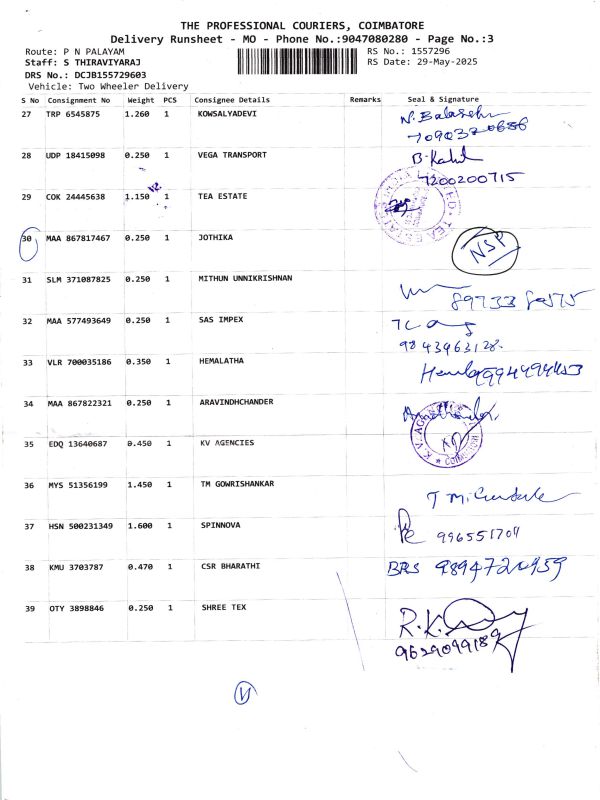 THE PROFESSIONAL COURIERS, COIMBATORE
Delivery Runsheet - MO - Phone No.:9047080280 - Page No.:3
Route: P N PALAYAM RS No.: 1557296
Staff: S THIRAVIYARAJ RS Date: 29-May-2025
DRS No.: DCJB155729603
Vehicle: Two Wheeler Delivery
S No Consignment No Weight PCS Consignee Details Remarks Seal & Signature
27 TRP 6545875 1.260 1 KOWSALYADEVI
28 UDP 18415098 0.250 1 VEGA TRANSPORT
7200200715
29 COK 24445638 1.150 1 TEA ESTATE
30 MAA 867817467 0.250 1 JOTHIKA NSP
31 SLM 371087825 0.250 1 MITHUN UNNIKRISHNAN
32 MAA 577493649 0.250 1 SAS IMPEX
9843963128.
33 VLR 700035186 0.350 1 HEMALATHA
34 MAA 867822321 0.250 1 ARAVINDHCHANDER
35 EDQ 13640687 0.450 1 KV AGENCIES
36 MYS 51356199 1.450 1 TM GOWRISHANKAR
37 HSN 500231349 1.600 1 SPINNOVA
38 KMU 3703787 0.470 1 CSR BHARATHI BRS
39 OTY 3898846 0.250 1 SHREE TEX R.K.
9629099189